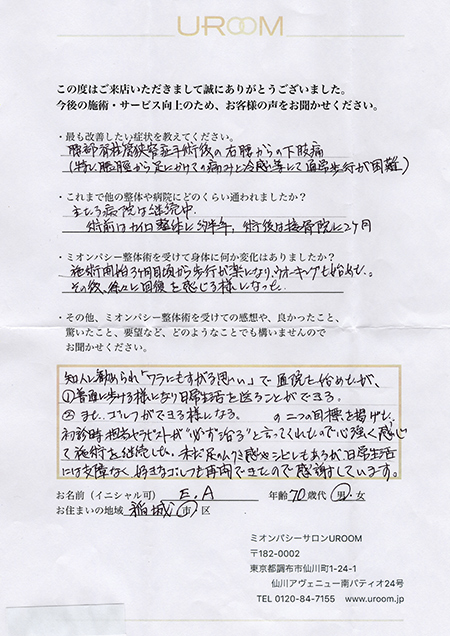 UROOM
この度はご来店いただきまして誠にありがとうございました。
今後の施術・サービス向上のため、お客様の声をお聞かせください。
・最も改善したい症状を教えてください。
腰部脊柱管狭窄症手術後の右腰からの下肢痛
(特に膝から足にかけての痛みと冷感等にて通常歩行が困難)
・これまで他の整体や病院にどのくらい通われましたか？
主たる病院は継続中
術前はカイロ整体に約半年、術後は接骨院に2ヶ月
・ミオンパシー整体術を受けて身体に何か変化はありましたか？
施術開始3ヶ月目頃から歩行が楽になり、ウオーキングを始めた。
その後、徐々に回復を感じる様になった。
・その他、ミオンパシー整体術を受けての感想や、良かったこと、
驚いたこと、要望など、どのようなことでも構いませんので
お聞かせください。
知人に勧められ「ワラにもすがる思い」で通院を始めたが、
①普通に歩ける様になり日常生活を送ることができる。
②また、ゴルフができる様になる。 の二つの目標を掲げた。
初診時担当セラピストが“必ず治る”と言ってくれたので心強く感じ
て施術を継続した。未だ足の人の冷感やシビレもあるが日常生活
には支障なく、好きなゴルフも再開できたので感謝しています。
お名前（イニシャル可） E.A 年齢 70 歳代 男・女
お住まいの地域 稲城 市・区
ミオンパシーサロンUROOM
〒182-0002
東京都調布市仙川町1-24-1
仙川アヴェニュー南パティオ24号
TEL 0120-84-7155 www.uroom.jp